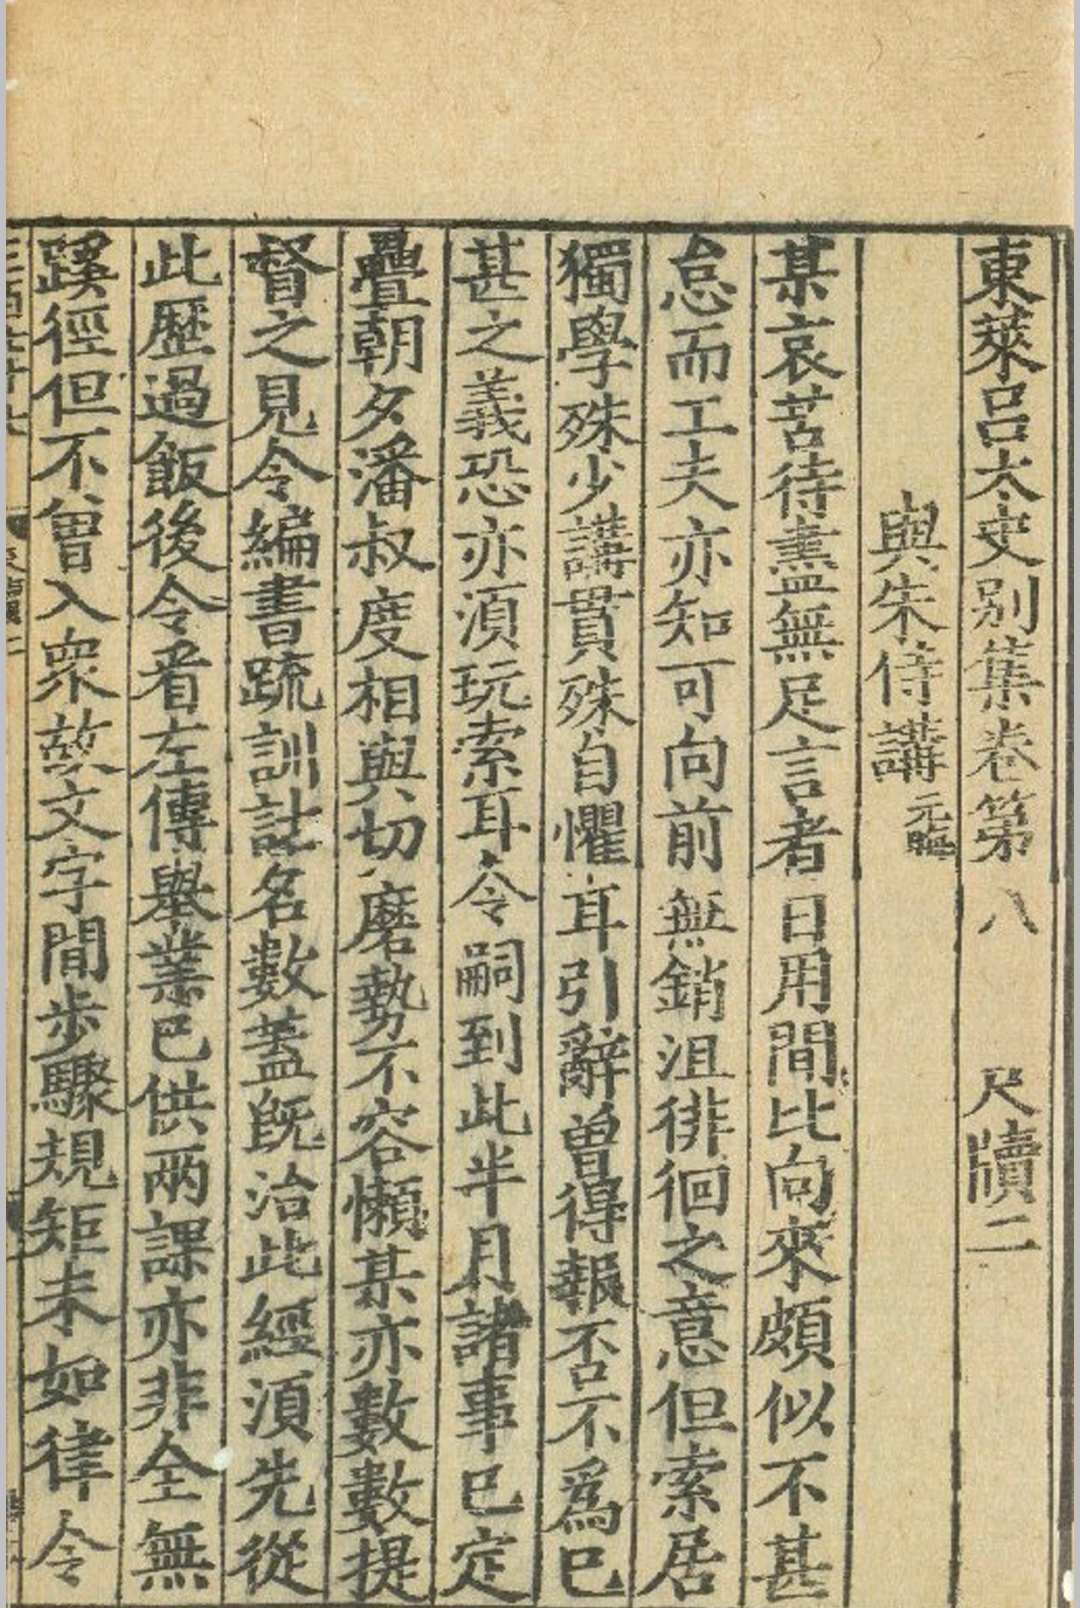 東萊呂太史別集卷第八　尺牘二
與朱侍講元晦
某哀苦待盡無足言者日用間比向來頗似不甚
怠而工夫亦知可向前無銷沮徘徊之意但索居
獨學殊少講貫殊自懼耳引辭曾得報否不爲已
甚之義恐亦須玩索耳令嗣到此半月諸事已定
疊朝夕潘叔度相與切磨勢不容懶某亦數數提
督之見令編書疏訓詁名數蓋旣治此經須先從
此歷過飯後令看左傳舉業已供兩課亦非全無
蹊徑但不曾入衆故文字間步驟規矩未如律令